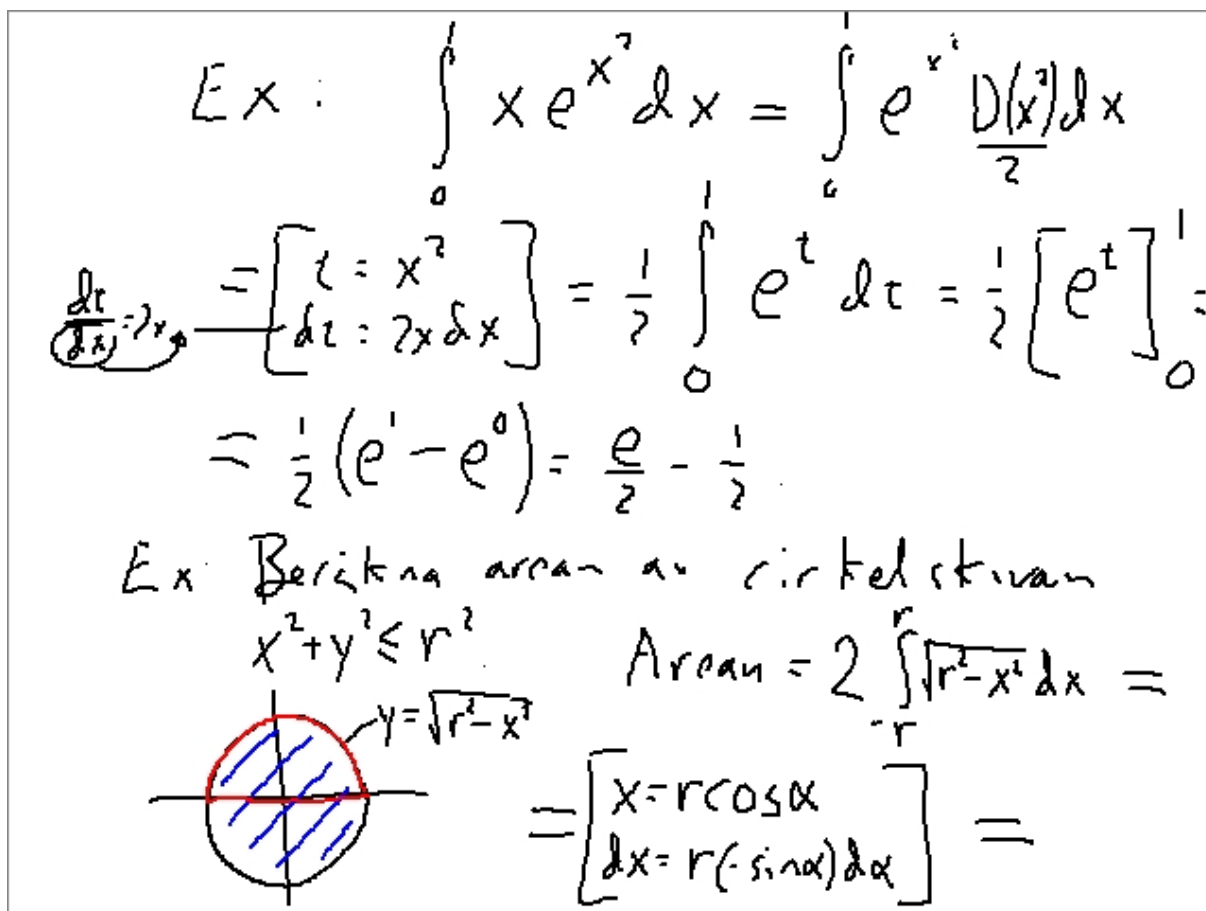 Ex: ∫₀¹ x e^{x²} dx = ∫₀¹ e^{x²} D(x²)/2 dx
dt/dx = 2x = [t = x² dt = 2x dx] = 1/2 ∫₀¹ e^t dt = 1/2 [e^t]₀¹ =
= 1/2 (e¹ − e⁰) = e/2 − 1/2
Ex Beräkna arean av cirkelskivan
x² + y² ≤ r² Arean = 2 ∫₋ᵣʳ √(r² − x²) dx =
y = √(r² − x²)
= [x = r cos α dx = r(−sin α) dα] =